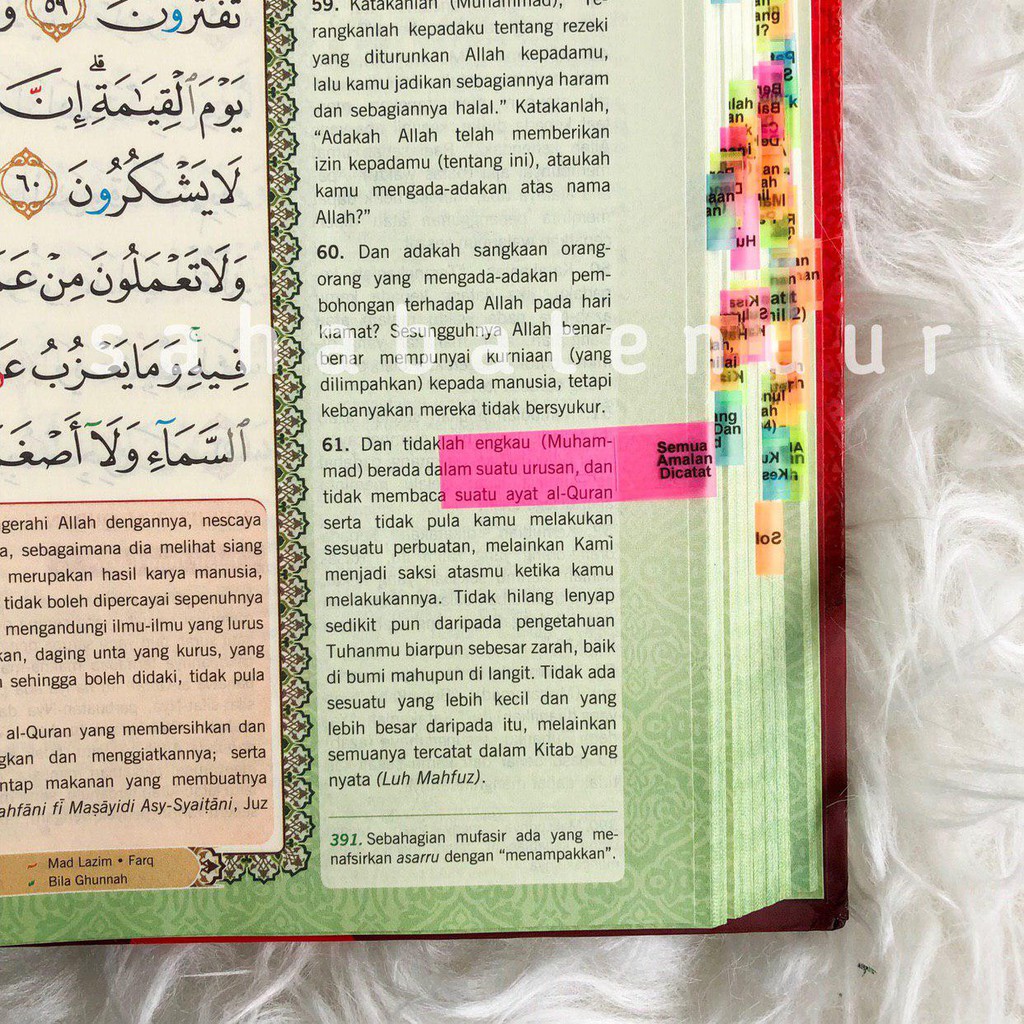 تَفْتَرُونَ ٥٩
يَوْمَ ٱلْقِيَٰمَةِۗ إِنَّ
لَا يَشْكُرُونَ ٦٠
وَلَا تَعْمَلُونَ مِنْ
فِيهِۚ وَمَا يَعْزُبُ
ٱلسَّمَآءِ وَلَآ
gerahi Allah dengannya, nescaya
a, sebagaimana dia melihat siang
merupakan hasil karya manusia,
tidak boleh dipercayai sepenuhnya
mengandungi ilmu-ilmu yang lurus
kan, daging unta yang kurus, yang
sehingga boleh didaki, tidak pula
al-Quran yang membersihkan dan
gkan dan menggiatkannya; serta
ntap makanan yang membuatnya
ahfāni fī Maṣāyidi Asy-Syaiṭāni, Juz
Mad Lazim • Farq
Bila Ghunnah
59. Katakanlah (Muhammad), "Te-
rangkanlah kepadaku tentang rezeki
yang diturunkan Allah kepadamu,
lalu kamu jadikan sebagiannya haram
dan sebagiannya halal." Katakanlah,
"Adakah Allah telah memberikan
izin kepadamu (tentang ini), ataukah
kamu mengada-adakan atas nama
Allah?"
60. Dan adakah sangkaan orang-
orang yang mengada-adakan pem-
bohongan terhadap Allah pada hari
kiamat? Sesungguhnya Allah benar-
benar mempunyai kurniaan (yang
dilimpahkan) kepada manusia, tetapi
kebanyakan mereka tidak bersyukur.
61. Dan tidaklah engkau (Muham-
mad) berada dalam suatu urusan, dan
tidak membaca suatu ayat al-Quran
serta tidak pula kamu melakukan
sesuatu perbuatan, melainkan Kami
menjadi saksi atasmu ketika kamu
melakukannya. Tidak hilang lenyap
sedikit pun daripada pengetahuan
Tuhanmu biarpun sebesar zarah, baik
di bumi mahupun di langit. Tidak ada
sesuatu yang lebih kecil dan yang
lebih besar daripada itu, melainkan
semuanya tercatat dalam Kitab yang
nyata (Luh Mahfuz).
391. Sebahagian mufasir ada yang me-
nafsirkan asarru dengan "menampakkan".
Semua
Amalan
Dicatat
sahabatennur